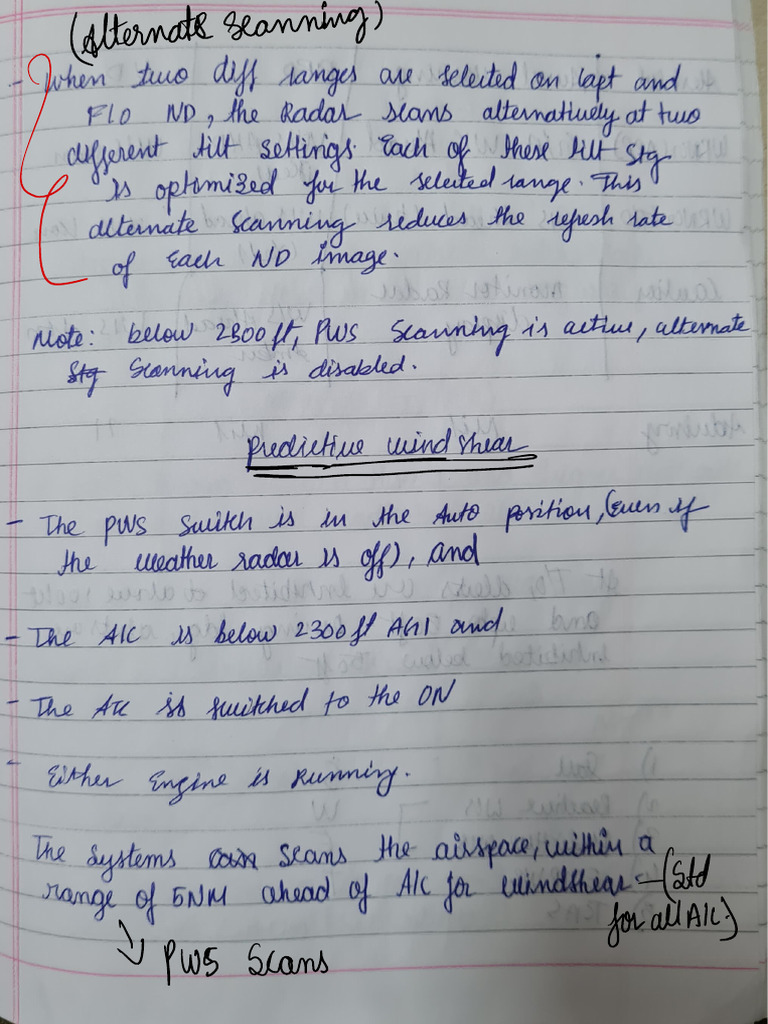 (Alternate Scanning)
- When two diff ranges are selected on Capt and
F/O ND, the Radar scans alternatively at two
different tilt settings. Each of these tilt Stg
is optimized for the selected range. This
alternate Scanning reduces the refresh rate
of Each ND image.
Note: below 2300 ft, PWS Scanning is active, alternate
Stg Scanning is disabled.
Predictive wind shear
- The PWS Switch is in the Auto position, (even if
the weather radar is off), and
- The A/C is below 2300 ft AGL and
- The ATC is switched to the ON
- Either Engine is Running.
The Systems scans the airspace, within a
range of 5NM ahead of A/C for windshear - (Std
for all A/C)
↓ PWS Scans